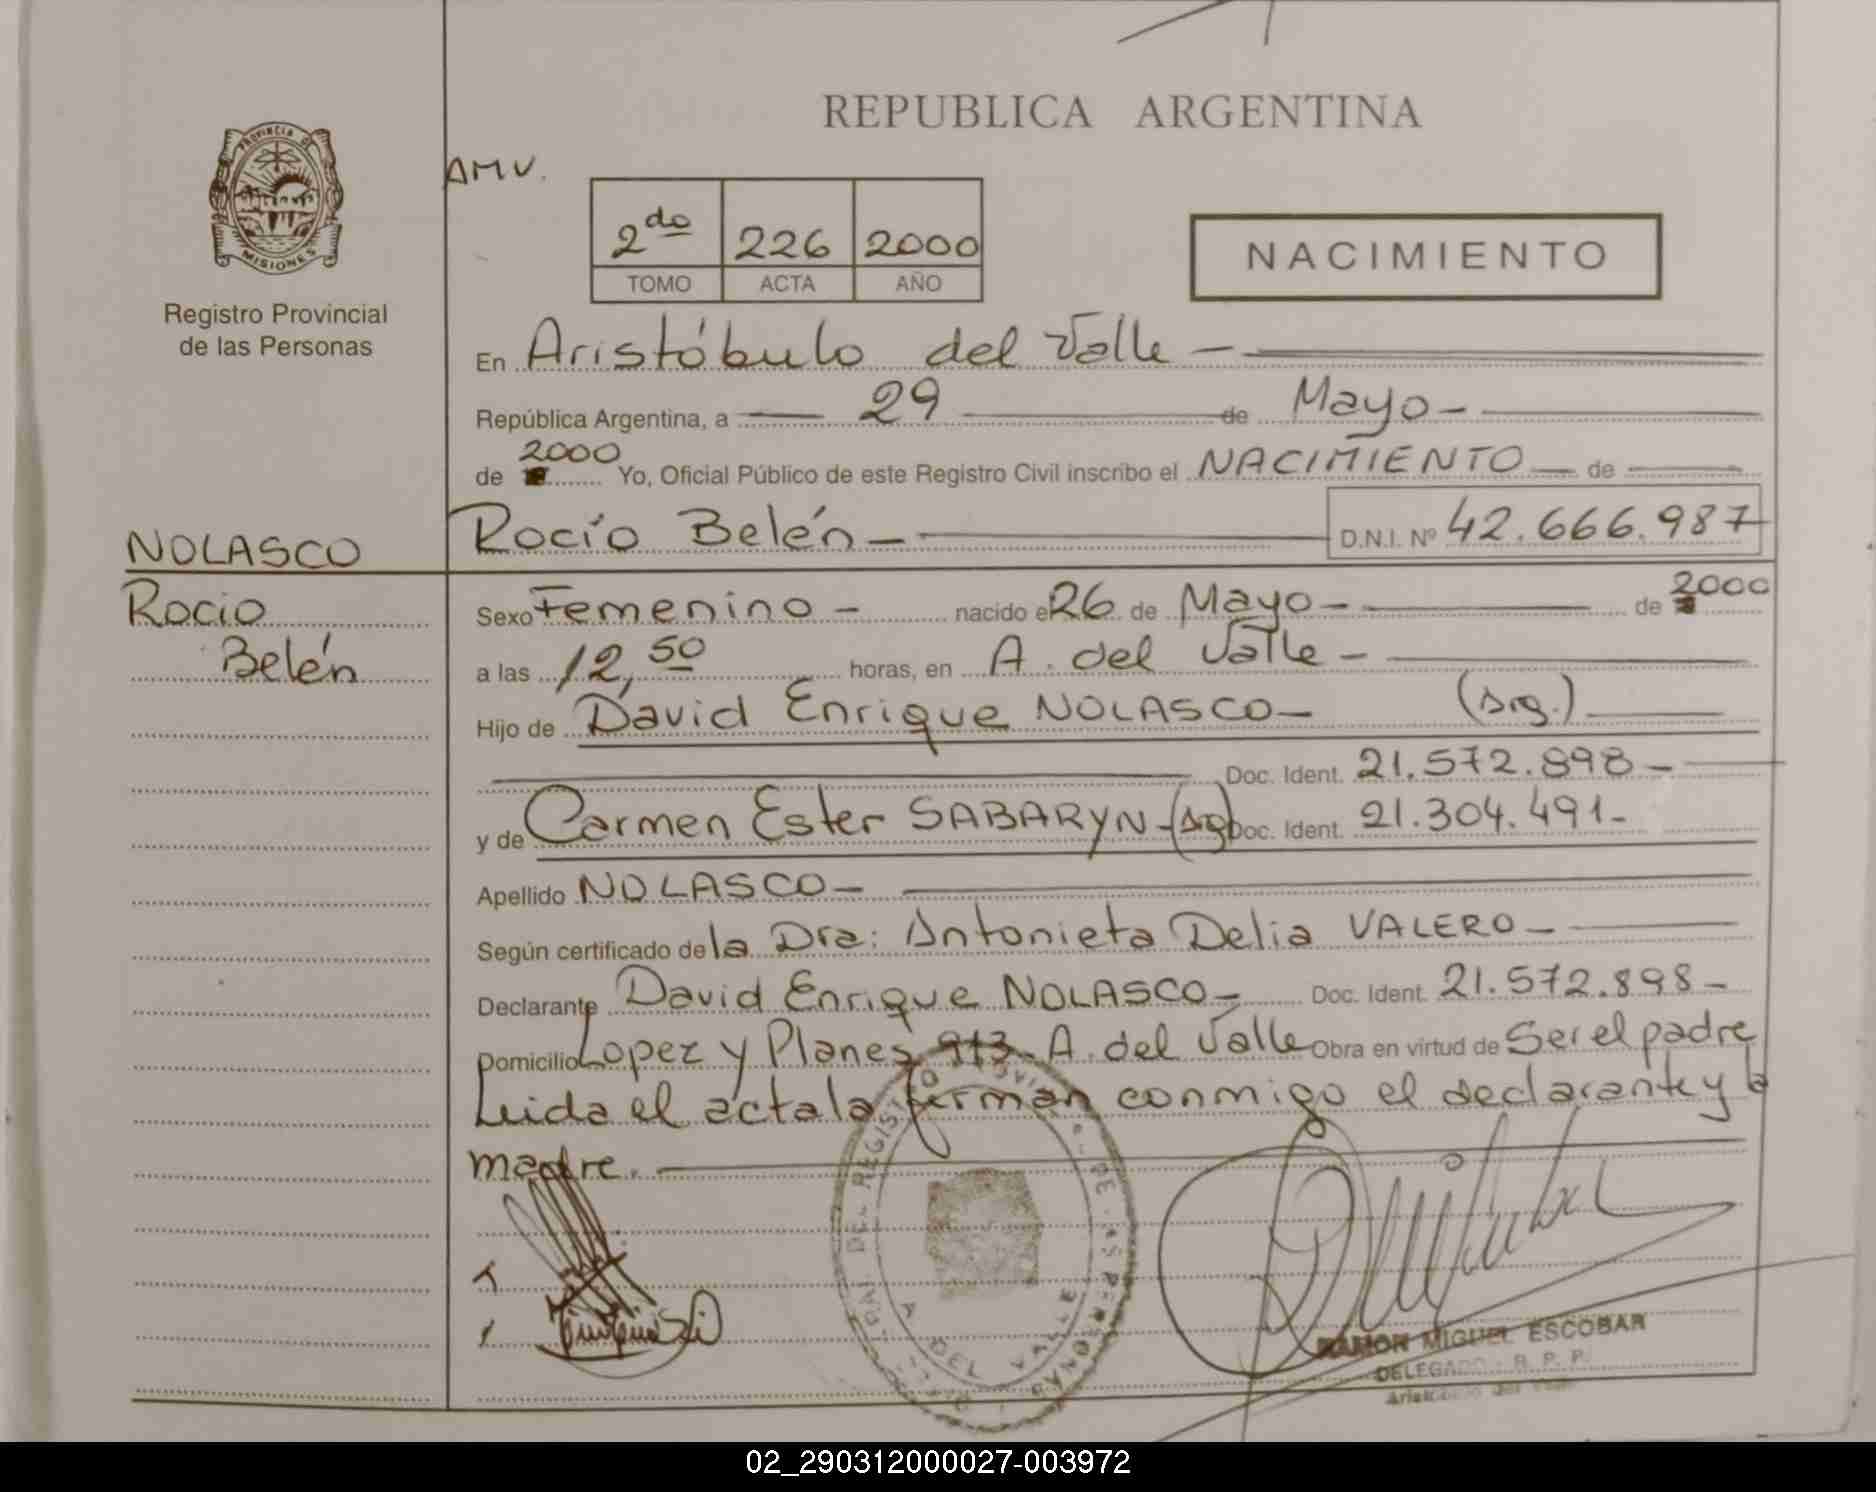 REPUBLICA ARGENTINA
PROVINCIA DE
MISIONES
Registro Provincial
de las Personas
AMV.
2do 226 2000
TOMO ACTA AÑO
NACIMIENTO
En Aristóbulo del Valle
República Argentina, a 29 de Mayo
de 2000 Yo, Oficial Público de este Registro Civil inscribo el NACIMIENTO de
NOLASCO
Rocío Belén
Rocío Belén D.N.I. Nº 42.666.987
Sexo Femenino nacido el 26 de Mayo de 2000
a las 12,50 horas, en A. del Valle
Hijo de David Enrique NOLASCO (Arg.)
Doc. Ident. 21.572.898
y de Carmen Ester SABARYN (Arg) Doc. Ident. 21.304.491
Apellido NOLASCO
Según certificado de la Dra: Antonieta Delia VALERO
Declarante David Enrique NOLASCO Doc. Ident. 21.572.898
Domicilio Lopez y Planes 913 A. del Valle Obra en virtud de Ser el padre
Leida el acta la firman conmigo el declarante y la
madre.
A. DEL VALLE
RAMON MIGUEL ESCOBAR
DELEGADO - R. P. P.
02_290312000027-003972